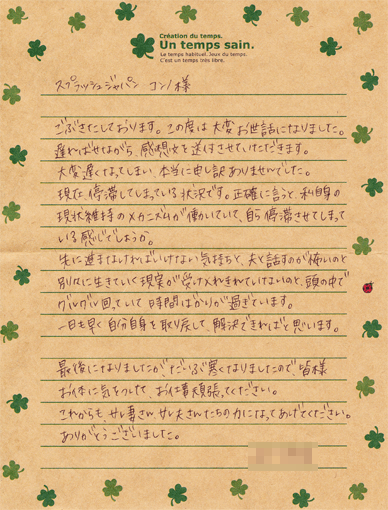 Création du temps.
Un temps sain.
Le temps habituel. Jeux du temps.
C'est un temps très libre.
スプラッシュジャパン コンノ様
ごぶさたしております。この度は大変お世話になりました。
遅ればせながら、感想文を送付させていただきます。
大変遅くなってしまい、本当に申し訳ありませんでした。
現在、停滞してしまっている状況です。正確に言うと、私自身の
現状維持のメカニズムが働いていて、自ら停滞させてしまって
いる感じでしょうか。
先に進まなければいけない気持ちと、夫と話すのが怖いのと
別々に生きていく現実が受け入れきれていないのと、頭の中で
グルグル回っていて時間ばかりが過ぎています。
一日も早く自分自身を取り戻して、解決できればと思います。
最後になりましたが、だいぶ寒くなりましたので皆様
お体に気をつけて、お仕事頑張ってください。
これからも、サレ妻さん、サレ夫さんたちの力になってあげてください。
ありがとうございました。